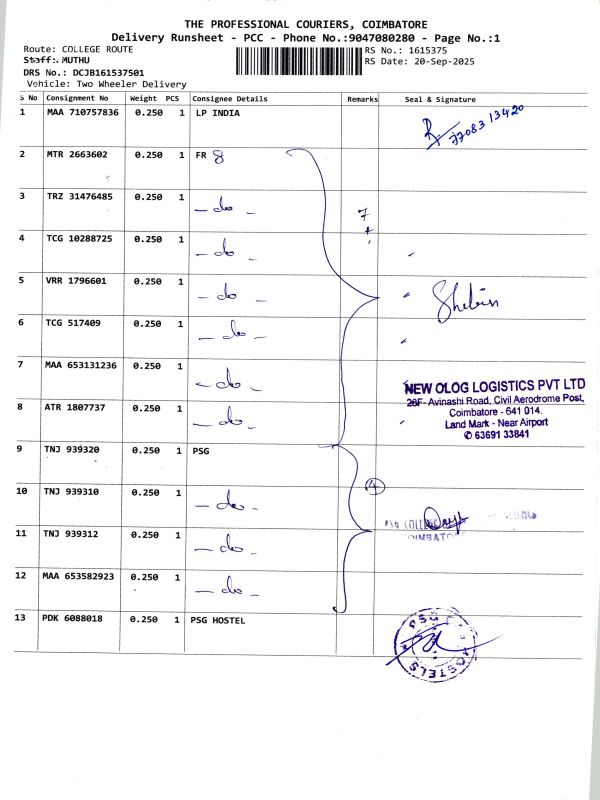 THE PROFESSIONAL COURIERS, COIMBATORE
Delivery Runsheet - PCC - Phone No.:9047080280 - Page No.:1
Route: COLLEGE ROUTE
RS No.: 1615375
Staff: MUTHU
RS Date: 20-Sep-2025
DRS No.: DCJB161537501
Vehicle: Two Wheeler Delivery
S No Consignment No Weight PCS Consignee Details Remarks Seal & Signature
1 MAA 710757836 0.250 1 LP INDIA
7708313420
2 MTR 2663602 0.250 1 FR 8
3 TRZ 31476485 0.250 1 - do -
7
4 TCG 10288725 0.250 1 - do -
5 VRR 1796601 0.250 1 - do -
Shebin
6 TCG 517409 0.250 1 - do -
7 MAA 653131236 0.250 1 - do -
NEW OLOG LOGISTICS PVT LTD
28F- Avinashi Road, Civil Aerodrome Post,
Coimbatore - 641 014.
Land Mark - Near Airport
✆ 63691 33841
8 ATR 1807737 0.250 1 - do -
9 TNJ 939320 0.250 1 PSG
4
10 TNJ 939310 0.250 1 - do -
PSG COLLEGE
COIMBATO
11 TNJ 939312 0.250 1 - do -
12 MAA 653582923 0.250 1 - do -
13 PDK 6088018 0.250 1 PSG HOSTEL
PSG
HOSTELS